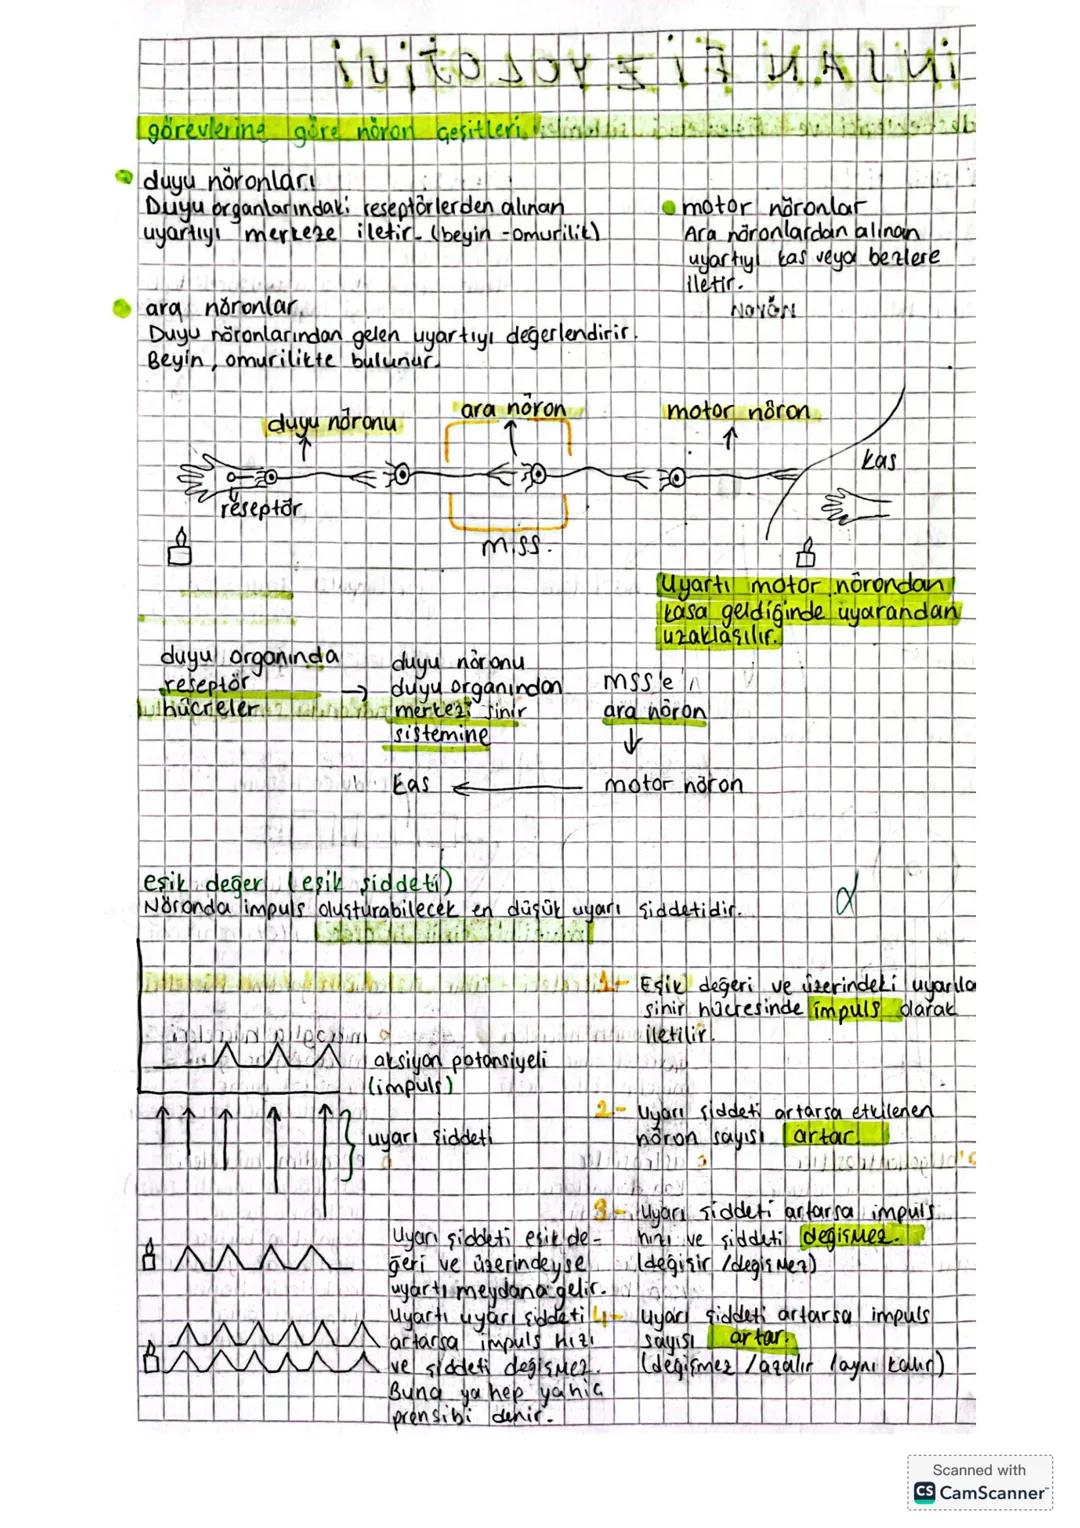 İNSAN FİZYOLOJİSİ
görevlerine göre nöron çeşitleri
duyu nöronları
Duyu organlarındaki reseptörlerden alınan
uyartıyı merkeze iletir. (beyin - omurilik)
motor nöronlar
Ara nöronlardan alınan
uyartıyı kas veya bezlere
iletir.
ara nöronlar
Duyu nöronlarından gelen uyartıyı değerlendirir.
Beyin, omurilikte bulunur.
duyu nöronu
ara nöron
motor nöron
kas
reseptör
m.ss.
Uyartı motor nörondan
kasa geldiğinde uyarandan
uzaklaşılır.
duyu organında
reseptör
hücreler
duyu nöronu
duyu organından
merkezi sinir
sistemine
mss'e
ara nöron
motor nöron
kas
eşik değer (eşik şiddeti)
Nöronda impuls oluşturabilecek en düşük uyarı şiddetidir.
aksiyon potansiyeli
(impuls)
uyarı şiddeti
Uyarı şiddeti eşik de-
ğeri ve üzerindeyse
uyartı meydana gelir.
Uyartı uyarı şiddeti
artarsa impuls hızı
ve şiddeti değişmez.
Buna ya hep ya hiç
prensibi denir.
1- Eşik değeri ve üzerindeki uyarıla
sinir hücresinde impuls olarak
iletilir.
2- Uyarı şiddeti artarsa etkilenen
nöron sayısı artar.
3- Uyarı şiddeti artarsa impuls
hızı ve şiddeti değişmez.
(değişir / değişmez)
4- Uyarı şiddeti artarsa impuls
sayısı artar.
(değişmez / azalır / aynı kalır)
Scanned with
CS CamScanner